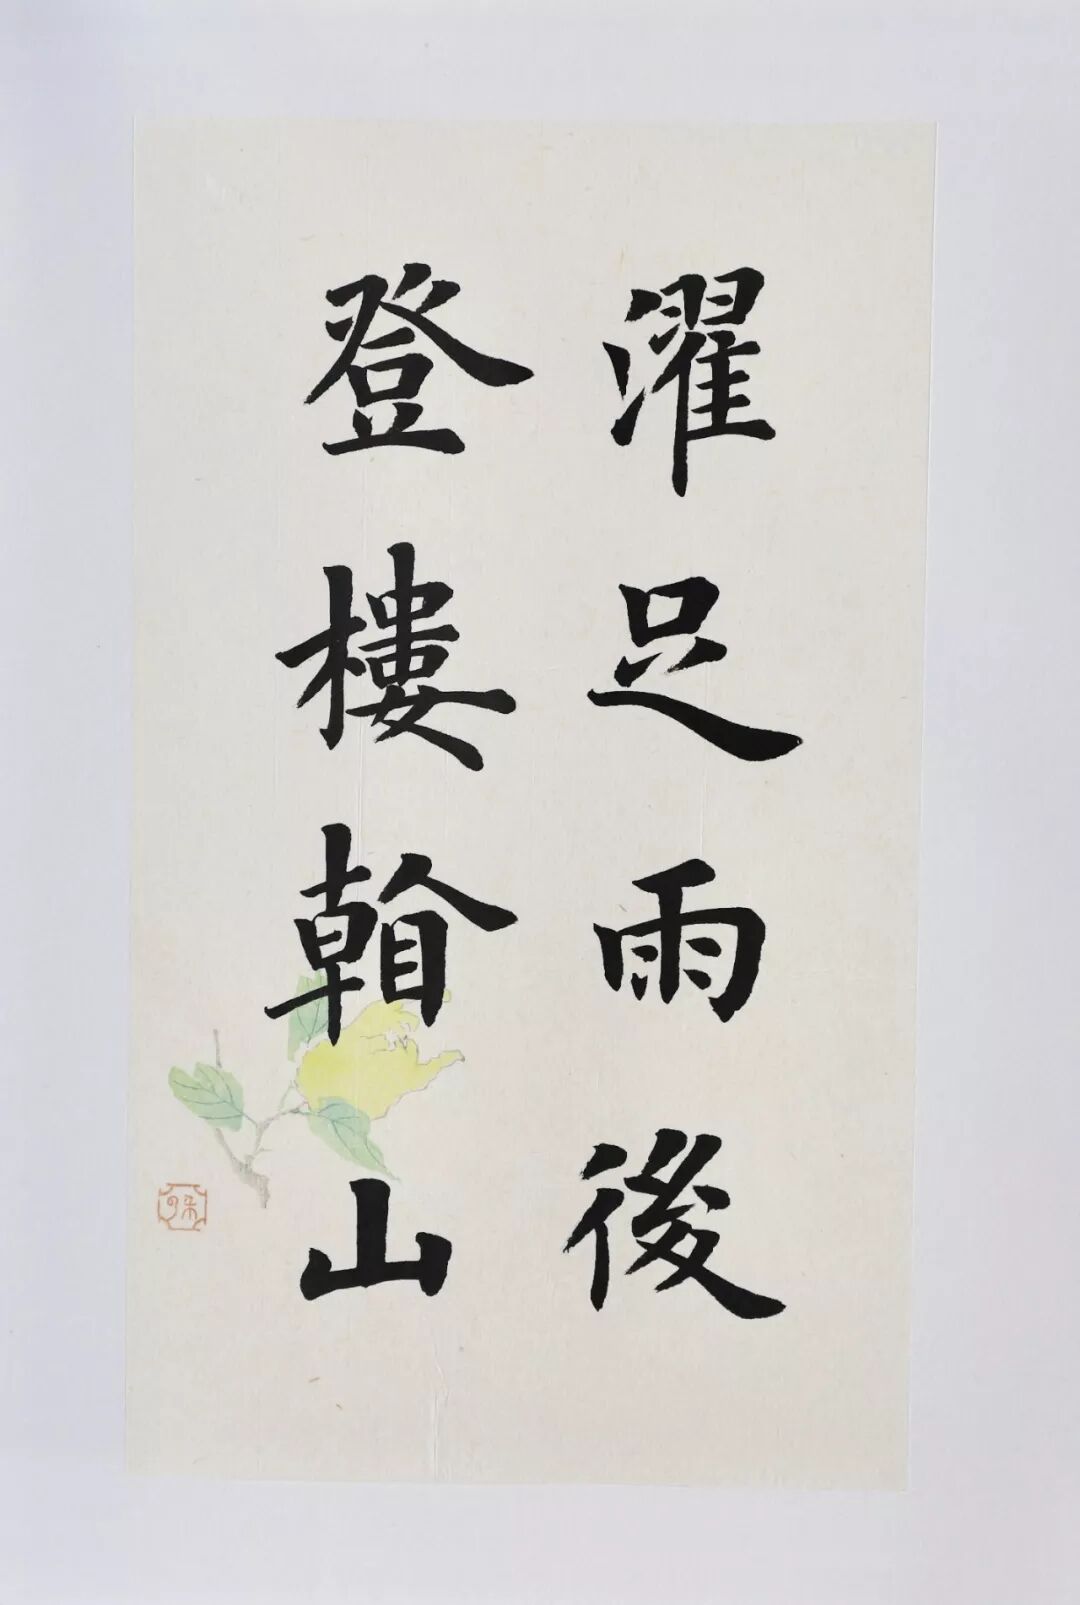 濯足雨後
登樓看山